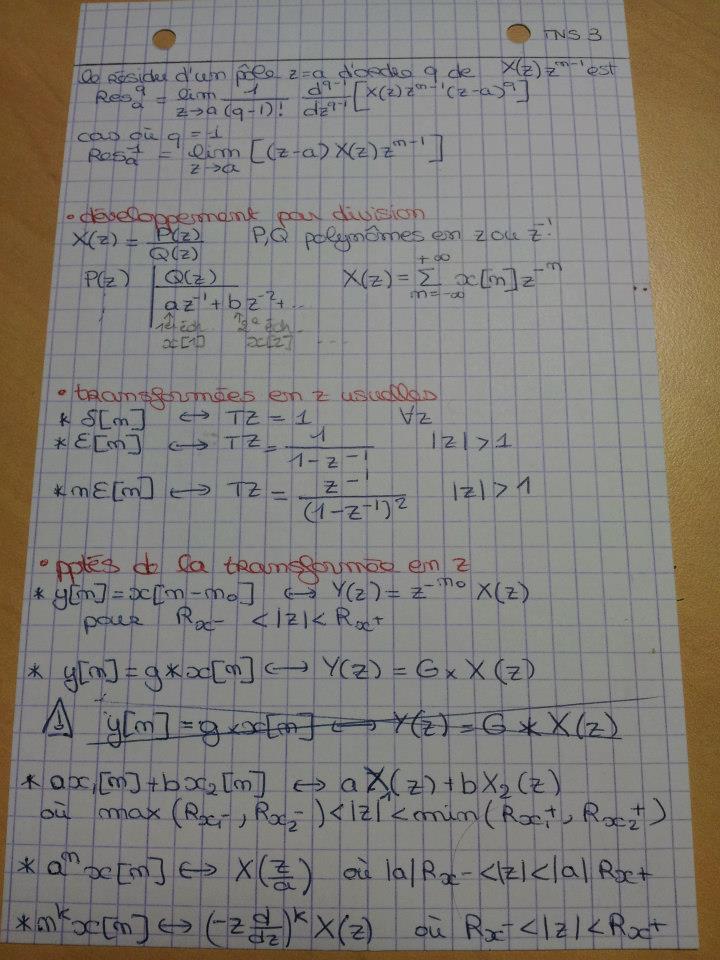 TNS 3
le résidu d'un pôle z=a d'ordre q de X(z) z^{n-1} est
Res_a^q = lim_{z→a} 1/(q-1)! d^{q-1}/dz^{q-1} [X(z) z^{n-1} (z-a)^q]
cas où q = 1
Res_a^1 = lim_{z→a} [(z-a) X(z) z^{n-1}]
• développement par division
X(z) = P(z)/Q(z) P,Q polynômes en z ou z^{-1}
P(z) | Q(z) X(z) = Σ_{n=-∞}^{+∞} x[n] z^{-n}
az^{-1} + bz^{-2} + ...
1er éch 2e éch.
x[1] x[2] ...
• transformées en z usuelles
* δ[n] ↔ TZ = 1 ∀z
* ε[n] ↔ TZ = 1/(1-z^{-1}) |z| > 1
* nε[n] ↔ TZ = z^{-1}/(1-z^{-1})^2 |z| > 1
• pptés de la transformée en z
* y[n] = x[n-n_0] ↔ Y(z) = z^{-n_0} X(z)
pour R_{x^-} < |z| < R_{x^+}
* y[n] = g*x[n] ↔ Y(z) = G × X(z)
⚠ y[n] = g × x[n] ↔ Y(z) = G * X(z)
* ax_1[n] + bx_2[n] ↔ aX_1(z) + bX_2(z)
où max(R_{x_1^-}, R_{x_2^-}) < |z| < min(R_{x_1^+}, R_{x_2^+})
* a^n x[n] ↔ X(z/a) où |a| R_{x^-} < |z| < |a| R_{x^+}
* n^k x[n] ↔ (-z d/dz)^k X(z) où R_{x^-} < |z| < R_{x^+}